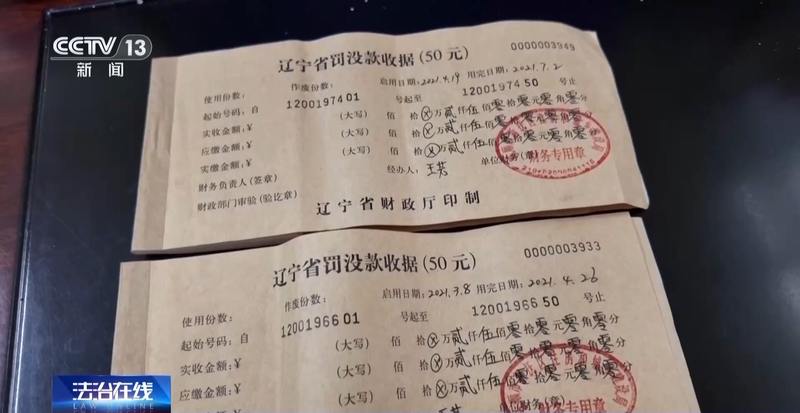 CCTV 13
新闻
辽宁省罚没款收据(50 元)
0000003949
使用份数:
作废份数:
启用日期: 2021.4.19 用完日期: 2021.7.2
起始号码: 自 1200197401 号起至 1200197450 号止
实收金额: ¥ (大写) 佰 拾 ⊗ 万 贰 仟 伍 佰 零 拾 零 元 零 角 零 分
应缴金额: ¥ (大写) 佰 拾 ⊗ 万 贰 仟 伍 佰 零 拾 零 元 零 角 零 分
实缴金额: ¥ (大写) 佰 拾 ⊗ 万 贰 仟 伍 佰 零 拾 零 元 零 角 零 分
财务负责人(签章) 经办人: 单位财务(章)
财务专用章
财政部门审验(验讫章)
辽宁省财政厅印制
辽宁省罚没款收据(50 元)
0000003933
使用份数:
作废份数:
启用日期: 2021.3.8 用完日期: 2021.4.26
起始号码: 自 1200196601 号起至 1200196650 号止
实收金额: ¥ (大写) 佰 拾 ⊗ 万 贰 仟 伍 佰 零 拾 零 元 零 角 零 分
应缴金额: ¥ (大写) 佰 拾 ⊗ 万 贰 仟 伍 佰 零 拾 零 元 零 角 零 分
(大写) 佰 拾 ⊗ 万 贰 仟 伍 佰 零 拾 零 元 零 角 零 分
法治在线
LAW ONLINE